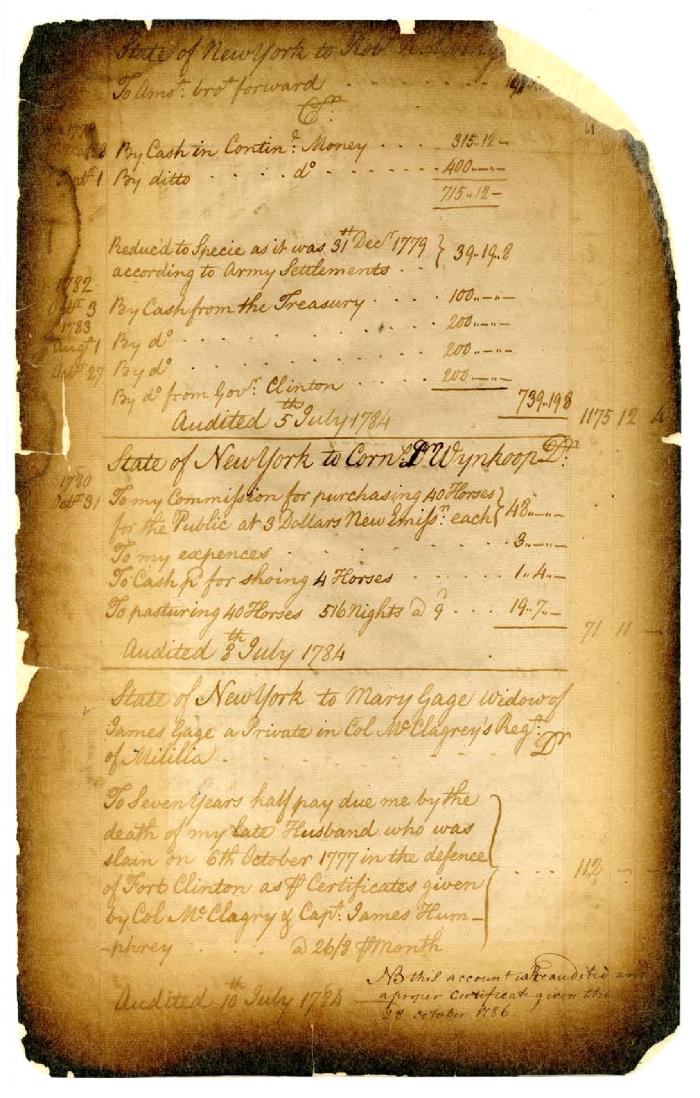 State of New York to Rob.t R. Living
To Amo.t bro.t forward
C.r
1779
By Cash in Contin.l Money . . . . 315..12 –
Sept.r 1 By ditto . . . . . d.o . . . . . . . 400..—..—
715..12 –
Reduc'd to Specie as it was 31st Dec.r 1779 } 39..19..8
according to Army Settlements . .
1782
Oct.r 3 By Cash from the Treasury . . . . 100..—..—
1783
Aug.t 1 By d.o . . . . . . . . . . . 200..—..—
Oct.r 27 By d.o . . . . . . . . . . . 200..—..—
By d.o from Gov.r Clinton . . . . . 200..—..—
739..19 8 1175 12 4
Audited 5th July 1784
State of New York to Corn.s D. Wynkoop D.r
1780
Oct.r 31 To my Commission for purchasing 40 Horses
for the Public at 3 Dollars New Emiss.n each } 48..—..—
To my expences . . . . . . . . . 3..—..—
To Cash p.d for shoing 4 Horses . . . . . . 1..4..—
To pasturing 40 Horses 516 Nights @ 9 . . . . 19..7..—
71 11 –
Audited 8th July 1784
State of New York to Mary Gage Widow of
James Gage a Private in Col McClagrey's Reg.t
of Mililia . . . . D.r
To Seven Years half pay due me by the
death of my late Husband who was
slain on 6th October 1777 in the defence
of Fort Clinton as ⅌ Certificates given . . . . 112 – –
by Col McClagry & Cap.t James Hum–
–phrey . . . . . @ 26/8 ⅌ Month
Audited 10th July 1784
NB this account is audited and
a proper Certificate given the
28 October 1786